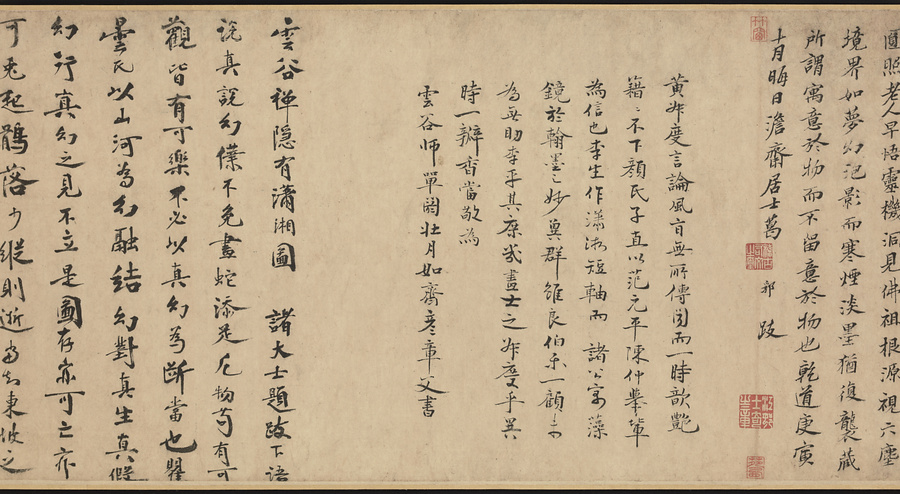 圓照老人早悟靈機洞見佛祖根源視六塵
境界如夢幻泡影而寒煙淡墨猶復襲藏
所謂寓意於物而不留意於物也乾道庚寅
十月晦日澹齋居士葛 郛 跋
黃叔度言論風旨無所傳聞而一時歆豔
籍〻不下顏氏子直以范元平陳仲舉輩
為信也李生作瀟湘短軸而諸公寄藻
鏡於翰墨〻妙冀群雖良伯樂一顧方
為無助李乎其庶幾畫士之叔度乎異
時一瓣香當敬為
雲谷師單閼壯月如齋彥章父書
雲谷禅隱有瀟湘圖 諸大士題跋下語
說真說幻僕不免畫蛇添足凡物苟有可
觀皆有可樂不必以真幻為斷當也瞿
曇氏以山河為幻融結幻對真生真假
幻行真幻之見不立是圖存亦可亡亦
可兔起鶻落少縱則逝當知東坡之